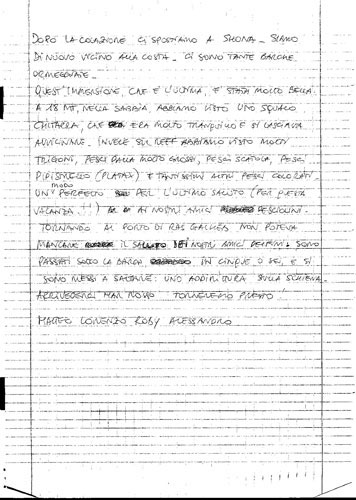 DOPO LA COLAZIONE CI SPOSTIAMO A SHONA. SIAMO
DI NUOVO VICINO ALLA COSTA. CI SONO TANTE BARCHE
ORMEGGIATE.
QUEST'IMMERSIONE, CHE È L'ULTIMA, È STATA MOLTO BELLA.
A 18 MT, NELLA SABBIA, ABBIAMO VISTO UNO SQUALO
CHITARRA, CHE ERA MOLTO TRANQUILLO E SI LASCIAVA
AVVICINARE. INVECE SUL REEF ABBIAMO VISTO MOLTI
TRIGONI, PESCI PALLA MOLTO GROSSI, PESCI SCATOLA, PESCI
PIPISTRELLO (PLATAX) E TANTISSIMI ALTRI PESCI COLORATI.
UN MODO PERFETTO PER L'ULTIMO SALUTO (PER QUESTA
VACANZA!!) AI NOSTRI AMICI PESCIOLINI.
TORNANDO AL PORTO DI RAS GALEB NON POTEVA
MANCARE IL SALUTO DEI NOSTRI AMICI DELFINI: SONO
PASSATI SOTTO LA BARCA IN CINQUE O SEI, E SI
SONO MESSI A SALTARE: UNO ADDIRITTURA SULLA SCHIENA.
ARRIVEDERCI MAR ROSSO TORNEREMO PRESTO!
MATTEO LORENZO ROBY ALESSANDRO